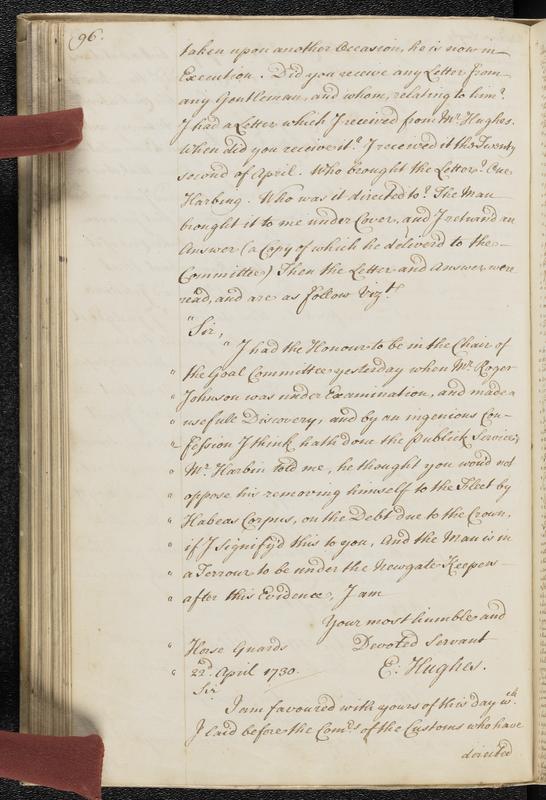 96.
taken upon another Occasion, he is now in
Execution. Did you receive any Letter from
any Gentleman, and whom, relating to him?
I had a Letter which I received from Mr. Hughes.
When did you receive it? I received it the Twenty
second of April. Who brought the Letter? One
Harbing. Who was it directed to? The Man
brought it to me under Cover, and I returnd an
Answer (a Copy of which he deliverd to the
Committee) Then the Letter and Answer were
read, and are as follow Vizt.
"Sir,
"I had the Honour to be in the Chair of
" the Goal Committee yesterday when Mr. Roger
" Johnson was under Examination, and made a
" usefull Discovery, and by an ingenious Con-
" fession I think hath done the Publick Service;
" Mr. Harbin told me, he thought you woud not
" oppose his removing himself to the Fleet by
" Habeas Corpus, on the Debt due to the Crown,
" if I signifyd this to you, And the Man is in
" a Terrour to be under the Newgate Keepers
" after this Evidence, I am
Your most humble and
" Horse Guards Devoted Servant
" 22d. April 1730. E: Hughes.
Sir
I am favoured with yours of this day wch.
I laid before the Coms. of the Customs who have
directed